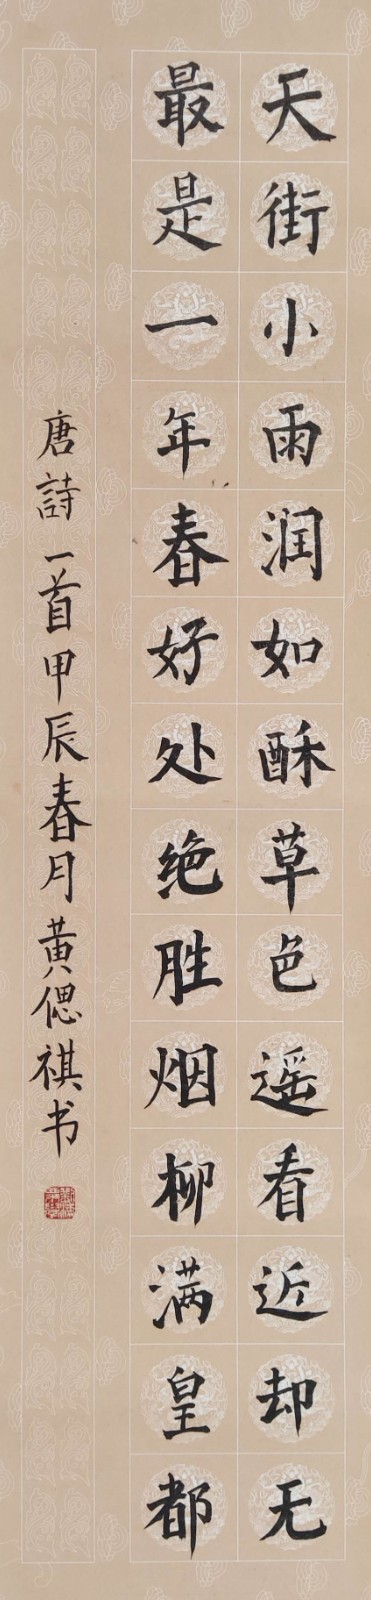 天街小雨润如酥草色遥看近却无
最是一年春好处绝胜烟柳满皇都
唐詩一首甲辰春月黄偲祺书